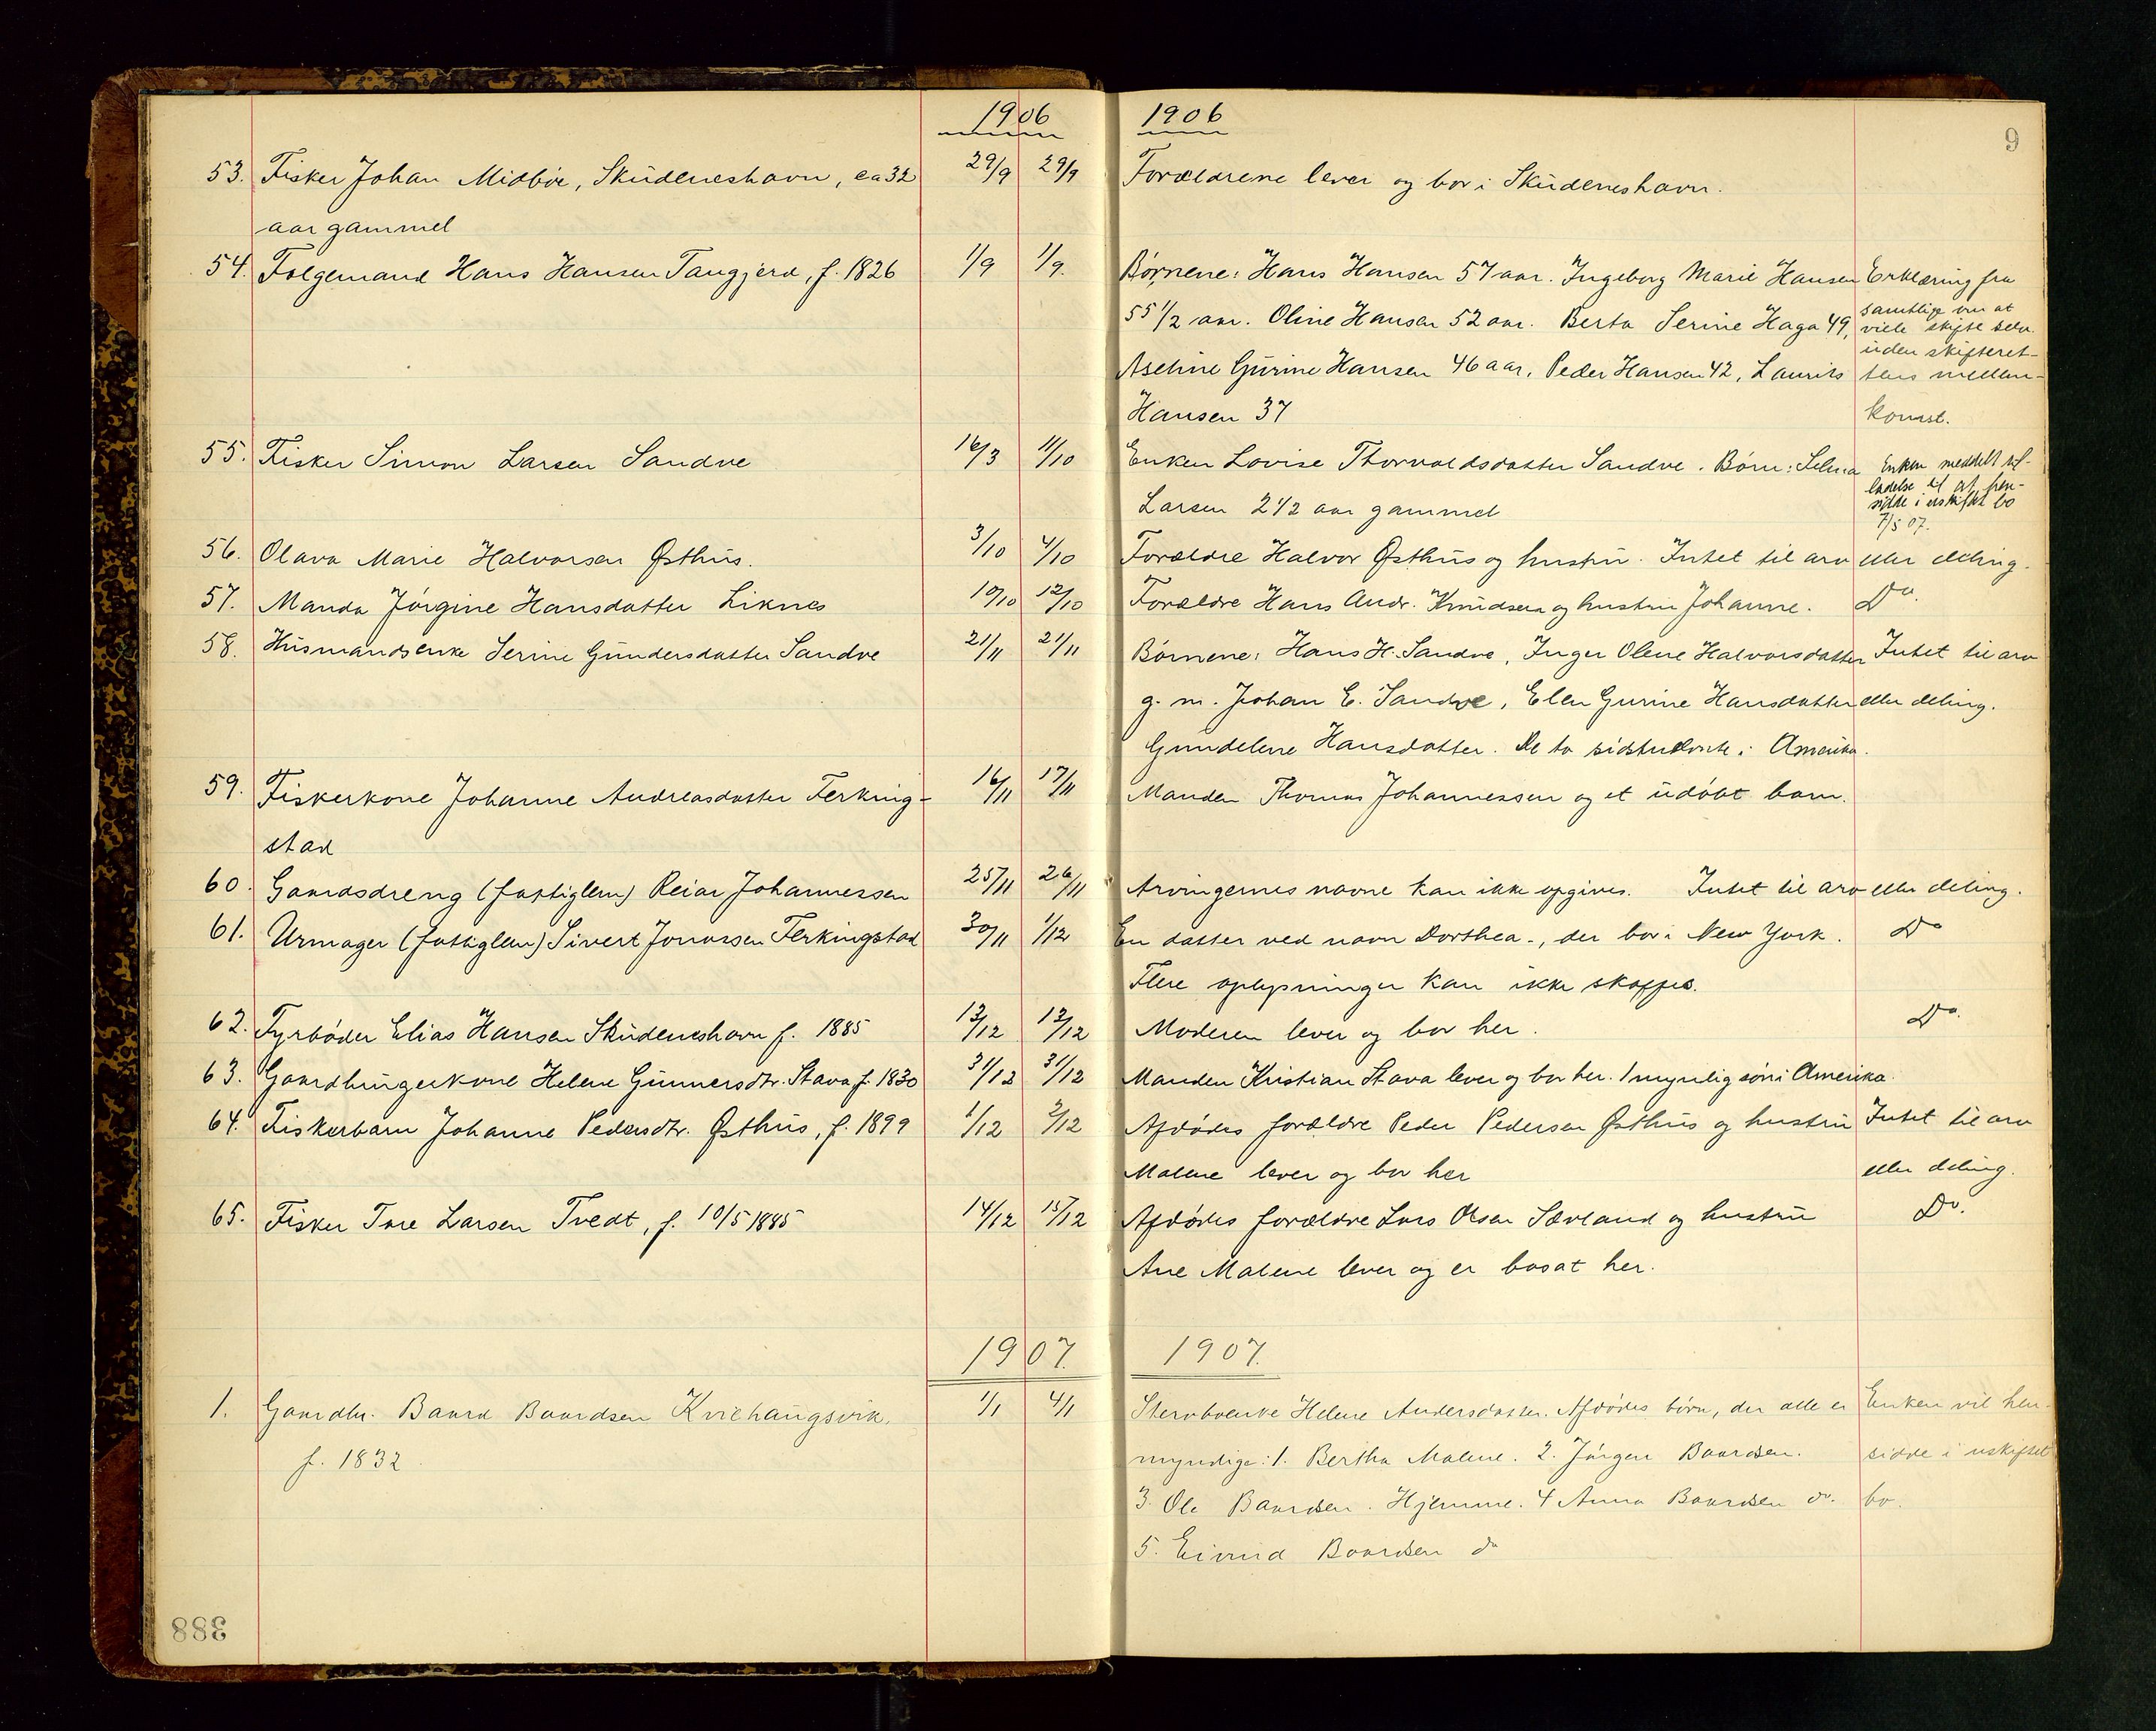 1906
53. Fisker Johan Midbøe, Skudeneshavn, ca 32 29/9 29/9
aar gammel
54. Folgemand Hans Hansen Tangjerd, f. 1826 1/9 1/9.
55. Fisker Simon Larsen Sandve 16/3 11/10
56. Olava Marie Halvorsen Østhus. 3/10 4/10
57. Manda Jørgine Hansdatter Liknes 10/10 12/10
58. Husmandsenke Serine Gundersdatter Sandve 21/11 21/11
59. Fiskerkone Johanne Andreasdatter Ferking- 16/11 17/11
stad
60. Gaardsdreng (fattiglem) Reiar Johannessen 25/11 26/11
61. Urmager (fattiglem) Sivert Jonassen Ferkingstad 30/11 1/12
62. Fyrbøder Elias Hansen Skudeneshavn f. 1885 13/12 13/12
63. Gaardbrugerkone Helene Gunnersdtr. Stava f. 1830 31/12 31/12
64. Fiskerbarn Johanne Pedersdtr. Østhus, f. 1899 1/12 2/12
65. Fisker Tore Larsen Tvedt, f. 10/5 1885 14/12 15/12
1907.
1. Gaardbr. Baard Baardsen Kvilhaugsvik, 1/1 4/1
f. 1832
388
1906
9
Forældrene lever og bor i Skudeneshavn.
Børnene: Hans Hansen 57 aar. Ingeborg Marie Hansen Erklæring fra
samtlige om at
55 1/2 aar. Oline Hansen 52 aar. Berta Serine Haga 49, ville skifte selv
uden skifteret-
Aseline Gurine Hansen 46 aar, Peder Hansen 42, Laurits tens mellem-
Hansen 37 komst.
Enken Lovise Thorvaldsdatter Sandve. Børn: Selma Enken meddelt til-
ladelse til at hen-
Larsen 2 1/2 aar gammel sidde i uskiftet bo
7/5 07.
Forældre Halvor Østhus og hustru. Intet til arv eller deling.
Forældre Hans Andr. Knudsen og hustru Johanne. Do.
Børnene: Hans H. Sandve, Inger Olene Halvorsdatter Intet til arv
g. m. Johan E. Sandve, Elen Gurine Hansdatter eller deling.
Gundelene Hansdatter. De to sidstnævnte i Amerika.
Manden Thomas Johannessen og et udøbt barn.
Arvingernes navne kan ikke opgives. Intet til arv eller deling.
En datter ved navn Dorthea -, der bor i New York. Do
Flere oplysninger kan ikke skaffes.
Moderen lever og bor her. Do.
Manden Kristian Stava lever og bor her. 1 myndig søn i Amerika.
Afdødes forældre Peder Pedersen Østhus og hustru Intet til arv
Malene lever og bor her eller deling.
Afdødes forældre Lars Olsen Sævland og hustru Do.
Ane Malene lever og er bosat her.
1907.
Stervboenke Helene Andersdatter. Afdødes børn, der alle er Enken vil hen-
myndige: 1. Bertha Malene. 2. Jørgen Baardsen. sidde i uskiftet
3. Ole Baardsen. Hjemme. 4 Anna Baardsen do. bo.
5. Eivind Baardsen do